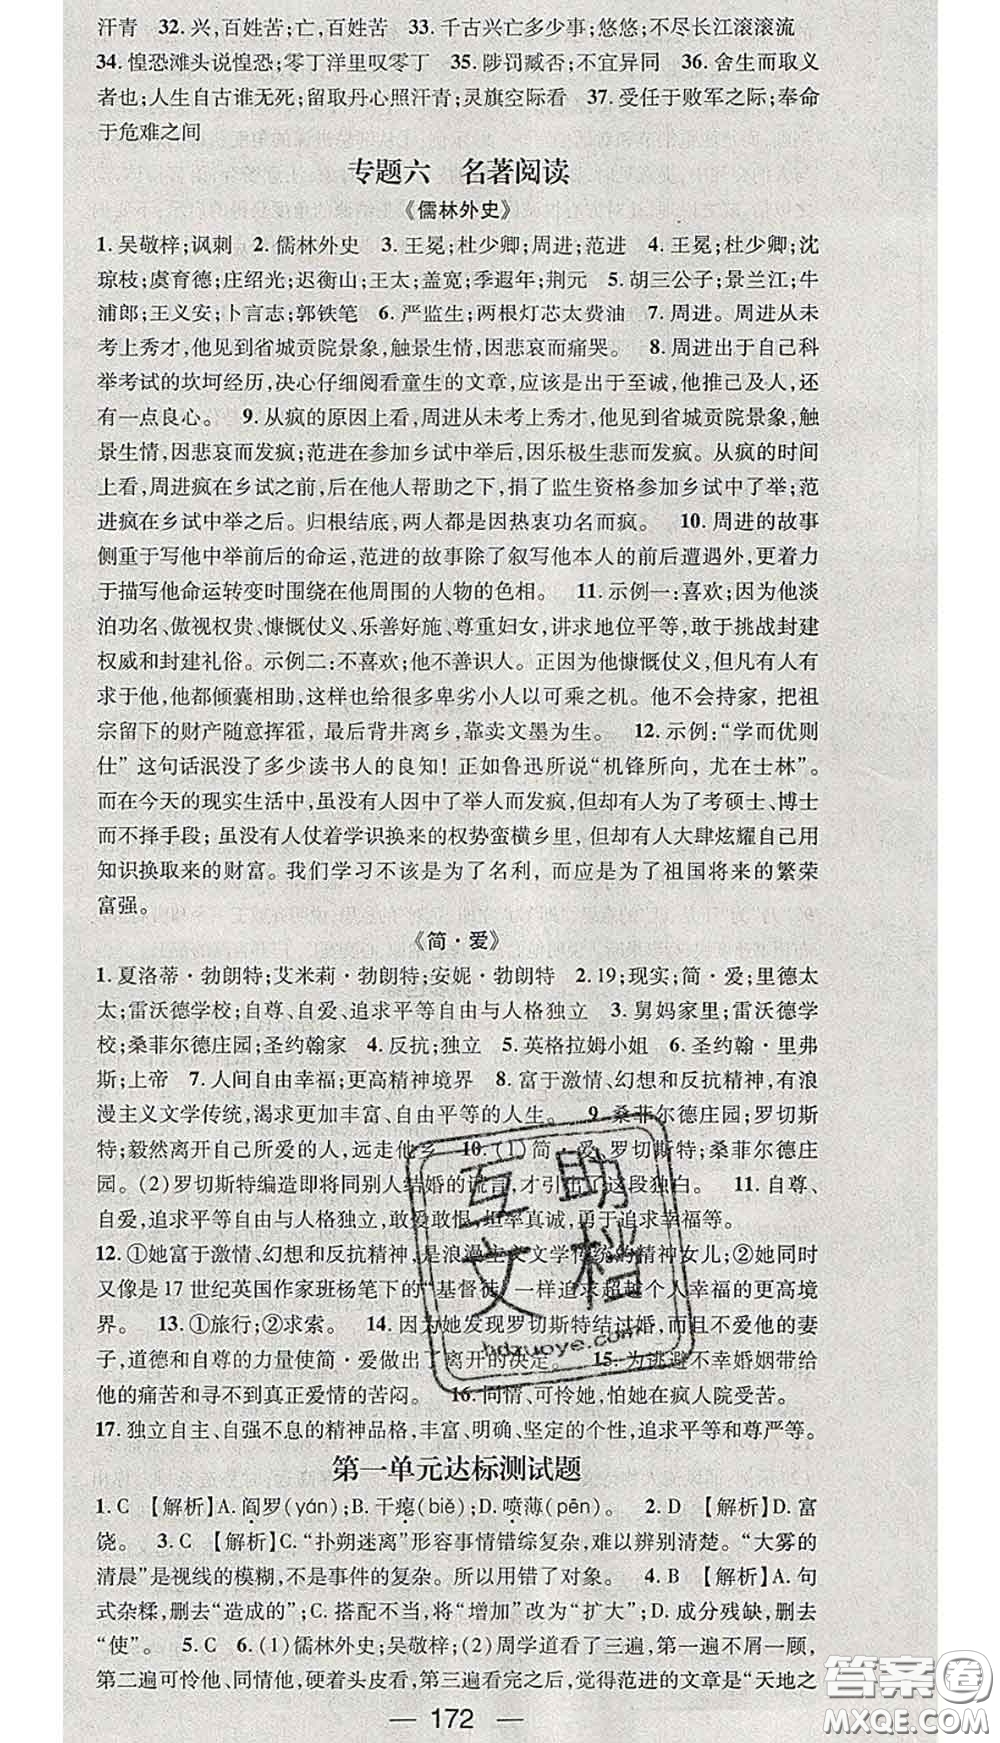 汗青　32. 兴,百姓苦;亡,百姓苦　33. 千古兴亡多少事;悠悠;不尽长江滚滚流
34. 惶恐滩头说惶恐;零丁洋里叹零丁　35. 陟罚臧否;不宜异同　36. 舍生而取义
者也;人生自古谁无死;留取丹心照汗青;灵旗空际看　37. 受任于败军之际;奉命
于危难之间
专题六　名著阅读
《儒林外史》
1. 吴敬梓;讽刺　2. 儒林外史　3. 王冕;杜少卿;周进;范进　4. 王冕;杜少卿;沈
琼枝;虞育德;庄绍光;迟衡山;王太;盖宽;季遐年;荆元　5. 胡三公子;景兰江;牛
浦郎;王义安;卜言志;郭铁笔　6. 严监生;两根灯芯太费油　7. 周进。周进从未
考上秀才,他见到省城贡院景象,触景生情,因悲哀而痛哭。　8. 周进出于自己科
举考试的坎坷经历,决心仔细阅看童生的文章,应该是出于至诚,他推己及人,还
有一点良心。　9. 从疯的原因上看,周进从未考上秀才,他见到省城贡院景象,触
景生情,因悲哀而发疯;范进在参加乡试中举后,因乐极生悲而发疯。从疯的时间
上看,周进疯在乡试之前,后在他人帮助之下,捐了监生资格参加乡试中了举;范
进疯在乡试中举之后。归根结底,两人都是因热衷功名而疯。　10. 周进的故事
侧重于写他中举前后的命运,范进的故事除了叙写他本人的前后遭遇外,更着力
于描写他命运转变时围绕在他周围的人物的色相。　11. 示例一:喜欢;因为他淡
泊功名、傲视权贵、慷慨仗义、乐善好施、尊重妇女,讲求地位平等,敢于挑战封建
权威和封建礼俗。示例二:不喜欢;他不善识人。正因为他慷慨仗义,但凡有人有
求于他,他都倾囊相助,这样也给很多卑劣小人以可乘之机。他不会持家,把祖
宗留下的财产随意挥霍,最后背井离乡,靠卖文墨为生。　12. 示例:“学而优则
仕”这句话泯没了多少读书人的良知!正如鲁迅所说“机锋所向,尤在士林”。
而在今天的现实生活中,虽没有人因中了举人而发疯,但却有人为了考硕士、博士
而不择手段;虽没有人仗着学识换来的权势蛮横乡里,但却有人大肆炫耀自己用
知识换取来的财富。我们学习不该是为了名利,而应是为了祖国将来的繁荣
富强。
《简·爱》
1. 夏洛蒂·勃朗特;艾米莉·勃朗特;安妮·勃朗特　2. 19;现实;简·爱;里德太
太;雷沃德学校;自尊、自爱、追求平等自由与人格独立　3. 舅妈家里;雷沃德学
校;桑菲尔德庄园;圣约翰家　4. 反抗;独立　5. 英格拉姆小姐　6. 圣约翰·里弗
斯;上帝　7. 人间自由幸福;更高精神境界　8. 富于激情、幻想和反抗精神,有浪
漫主义文学传统,渴求更加丰富、自由平等的人生。　9. 桑菲尔德庄园;罗切斯
特;毅然离开自己所爱的人,远走他乡　10. (1)简·爱、罗切斯特;桑菲尔德庄
园。(2)罗切斯特编造即将同别人结婚的谎言,才引出了这段独白。　11. 自尊、
自爱,追求平等自由与人格独立,敢爱敢恨,坦率真诚,勇于追求幸福等。
12. ①她富于激情、幻想和反抗精神,是浪漫主义文学传统的精神女儿;②她同时
又像是 17 世纪英国作家班杨笔下的“基督徒”一样追求超越个人幸福的更高境
界。　13. ①旅行;②求索。　14. 因为她发现罗切斯特结过婚,而且不爱他的妻
子,道德和自尊的力量使简·爱做出了离开的决定。　15. 为逃避不幸婚姻带给
他的痛苦和寻不到真正爱情的苦闷。　16. 同情、可怜她,怕她在疯人院受苦。
17. 独立自主、自强不息的精神品格,丰富、明确、坚定的个性,追求平等和尊严等。
第一单元达标测试题
1. C　【解析】A. 阎罗(yán);B. 干瘪(biě);D. 喷薄(pēn)。　2. D　【解析】D. 富
饶。　3. C　【解析】C.“扑朔迷离”形容事情错综复杂,难以辨别清楚。“大雾的
清晨”是视线的模糊,不是事件的复杂。所以用错了对象。　4. B　【解析】A. 句
式杂糅,删去“造成的”;C. 搭配不当,将“增加”改为“扩大”;D. 成分残缺,删去
“使”。　5. C　6. (1)儒林外史;吴敬梓;(2)周学道看了三遍,第一遍不屑一顾,
第二遍可怜他、同情他,硬着头皮看,第三遍看完之后,觉得范进的文章是“天地之
— 172 —
互助
文档
hdzuoye.com
答案圈
MXQE.COM